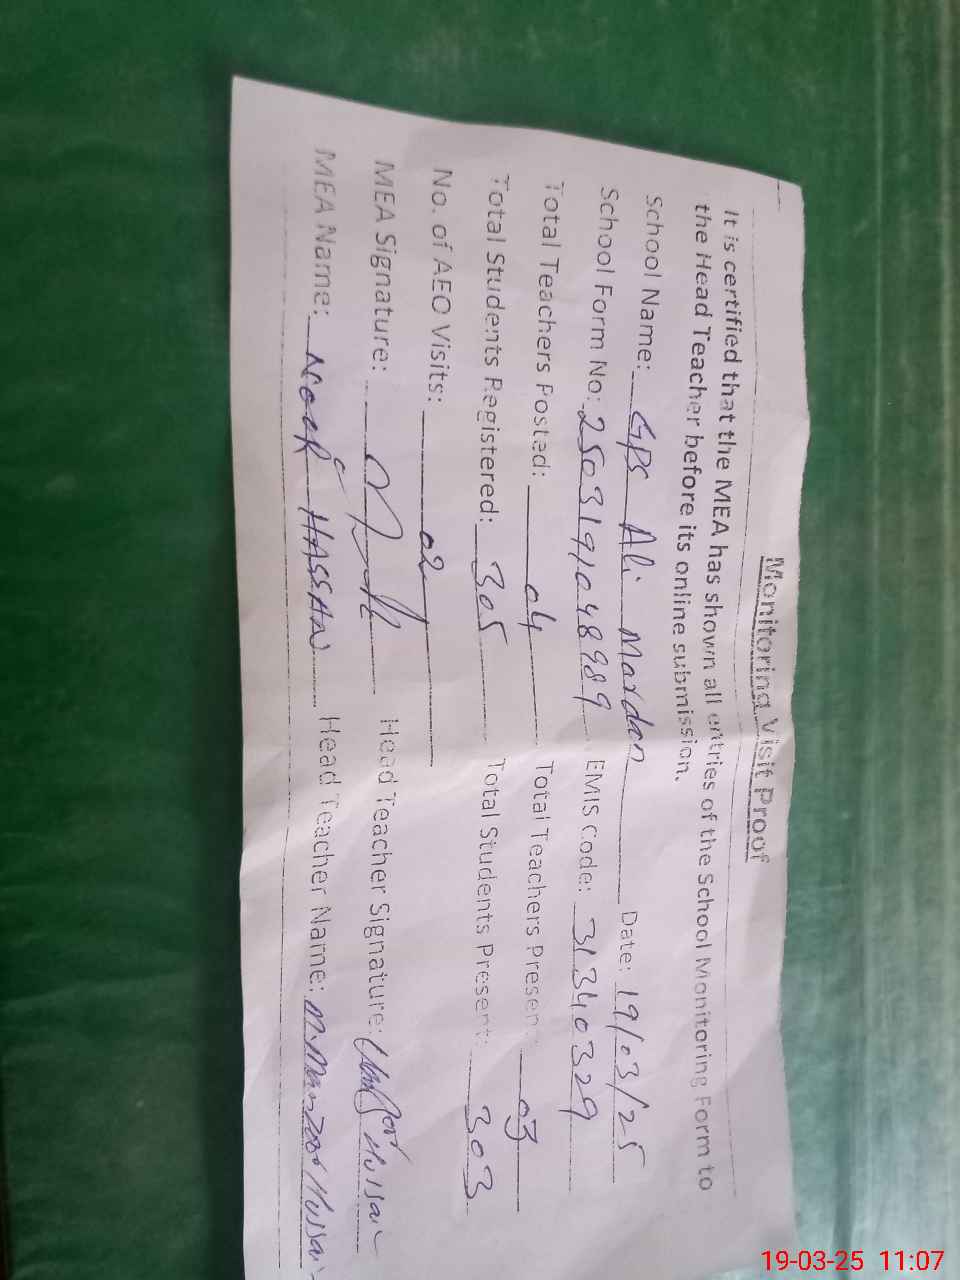 Monitoring Visit Proof
It is certified that the MEA has shown all entries of the School Monitoring Form to
the Head Teacher before its online submission.
School Name: GPS Ali Mardan Date: 19/03/25
School Form No: 2503191048989 EMIS Code: 31340329
Total Teachers Posted: 04 Total Teachers Present: 03
Total Students Registered: 305 Total Students Present: 303
No. of AEO Visits: 02
MEA Signature: Head Teacher Signature: Hussain
MEA Name: NOOR HASSAN Head Teacher Name: M. Manzoor Hussain
19-03-25 11:07